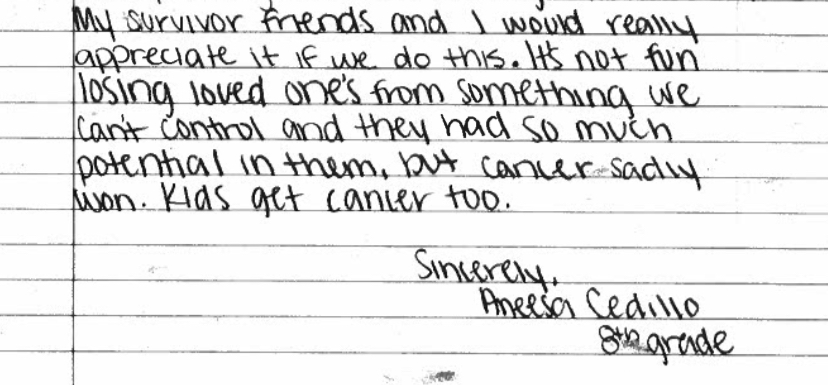 My survivor friends and I would really
appreciate it if we do this. It's not fun
losing loved one's from something we
can't control and they had so much
potential in them, but cancer sadly
won. Kids get cancer too.
Sincerely,
Aneesa Cedillo
8th grade